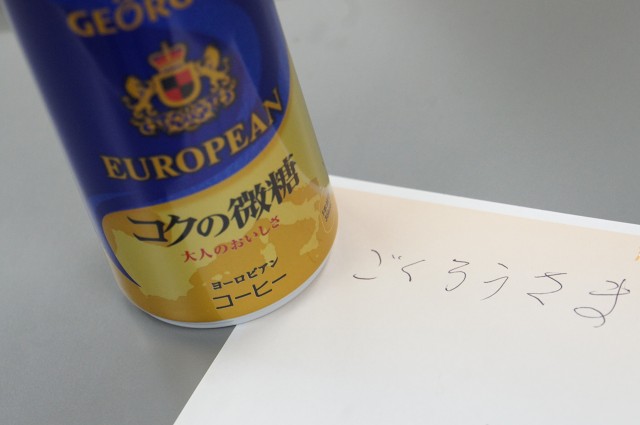 GEORG
EUROPEAN
コクの微糖
大人のおいしさ
ヨーロピアン
コーヒー
ごくろうさま